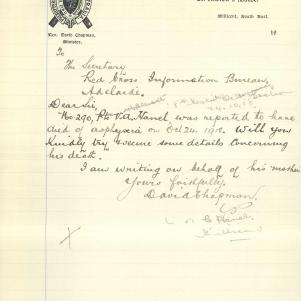 Millicent, South East.
Rev. David Chapman,
Minister.
19
To
The Secretary
Red Cross Information Bureau,
Adelaide.
Dear Sir,
No 290, Pte V.A. Hanel was reported to have
died of asphyxia on Oct 24, 1918. Will you
kindly try & secure some details concerning
his death.
I am writing on behalf of his mother
Yours faithfully,
David Chapman.